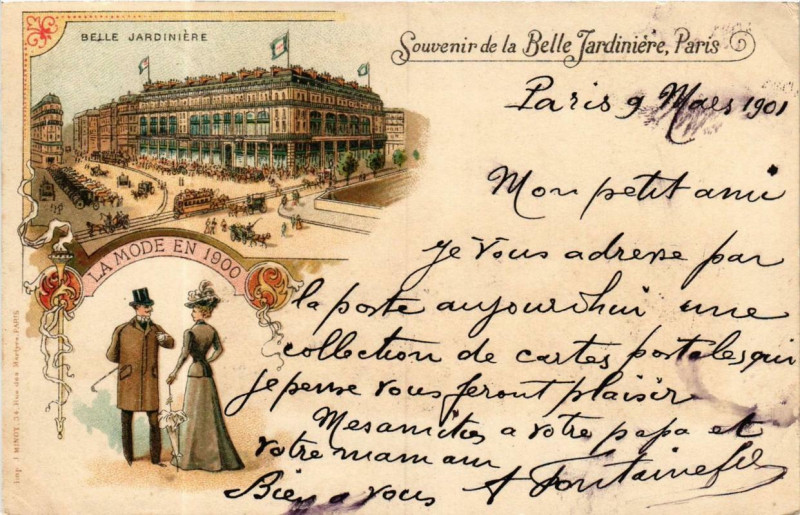 BELLE JARDINIÈRE
Souvenir de la Belle Jardinière, Paris
Paris 9 Mars 1901
Mon petit ami
je vous adresse par
la poste aujourd'hui une
collection de cartes postales qui
je pense vous feront plaisir
Mes amitiés a votre papa et
votre maman
Bien a vous A Fontaine fils
LA MODE EN 1900
Imp. J. MINOT, 34, Rue des Martyrs, PARIS